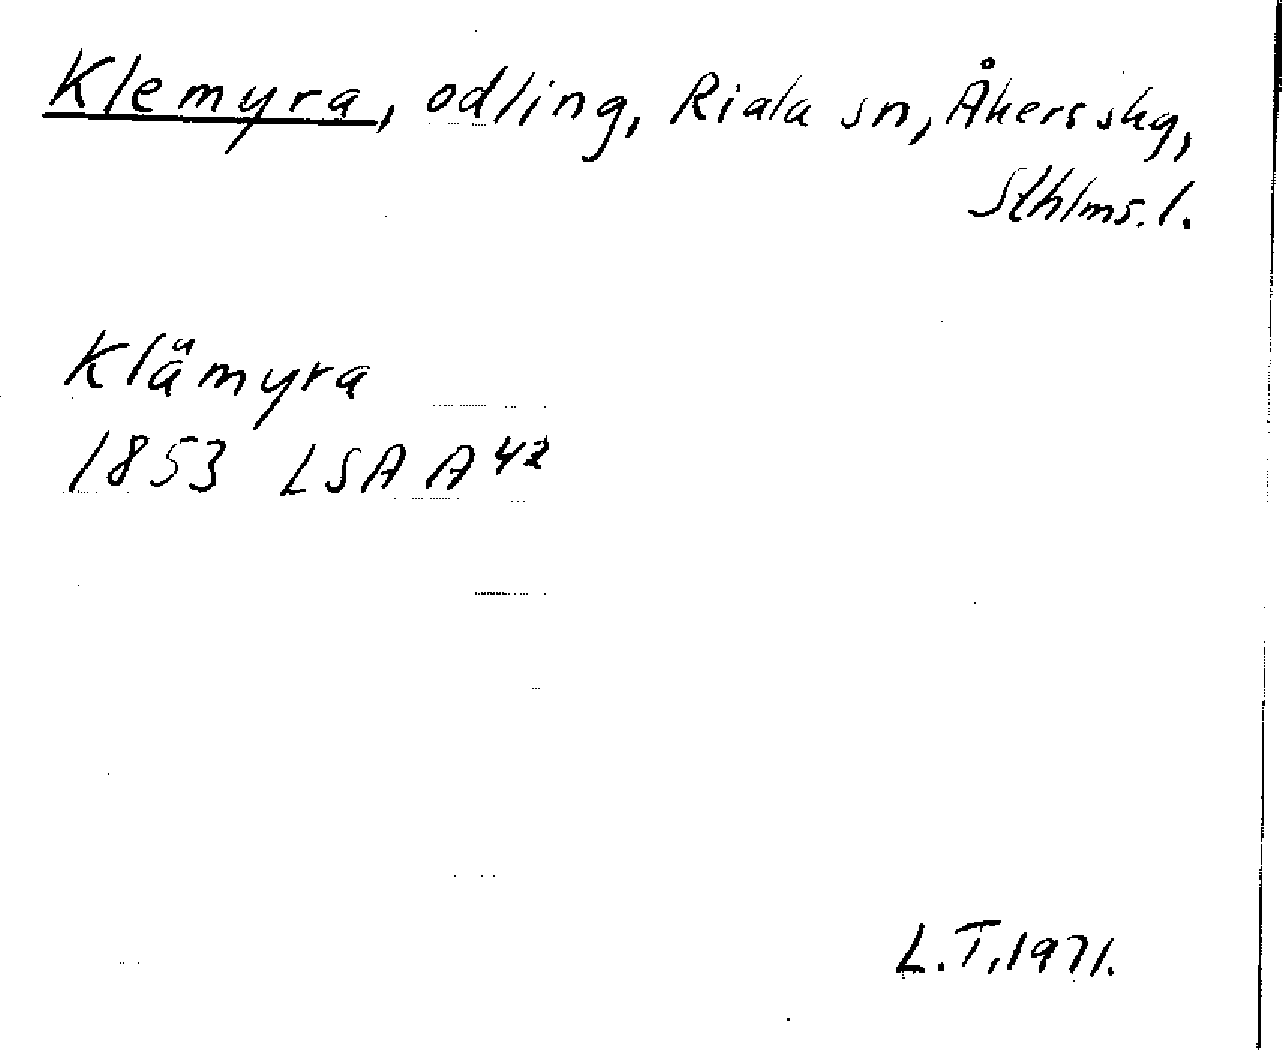 Klemyra, odling, Riala sn, Åkers skg,
Sthlms.l.
Klämyra
1853 LSA A 42
L.T. 1971.